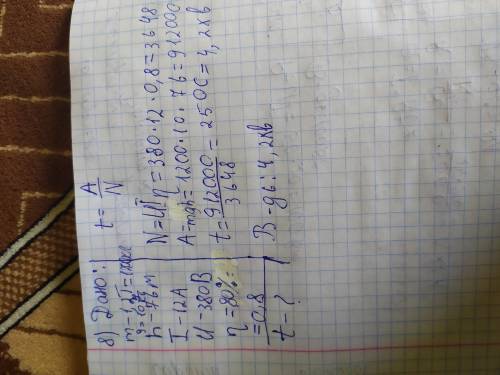 8) Дано:
m - 1,2 т = 1200 кг
g = 10
h 76 м
I - 12A
U - 380В
η = 80% =
= 0,8
t - ?
t = A/N
N = UIη = 380·12·0,8 = 3648
A = mgh = 1200·10·76 = 912000
t = 912000/3648 = 250C = 4,2хв
В - дь: 4,2хв